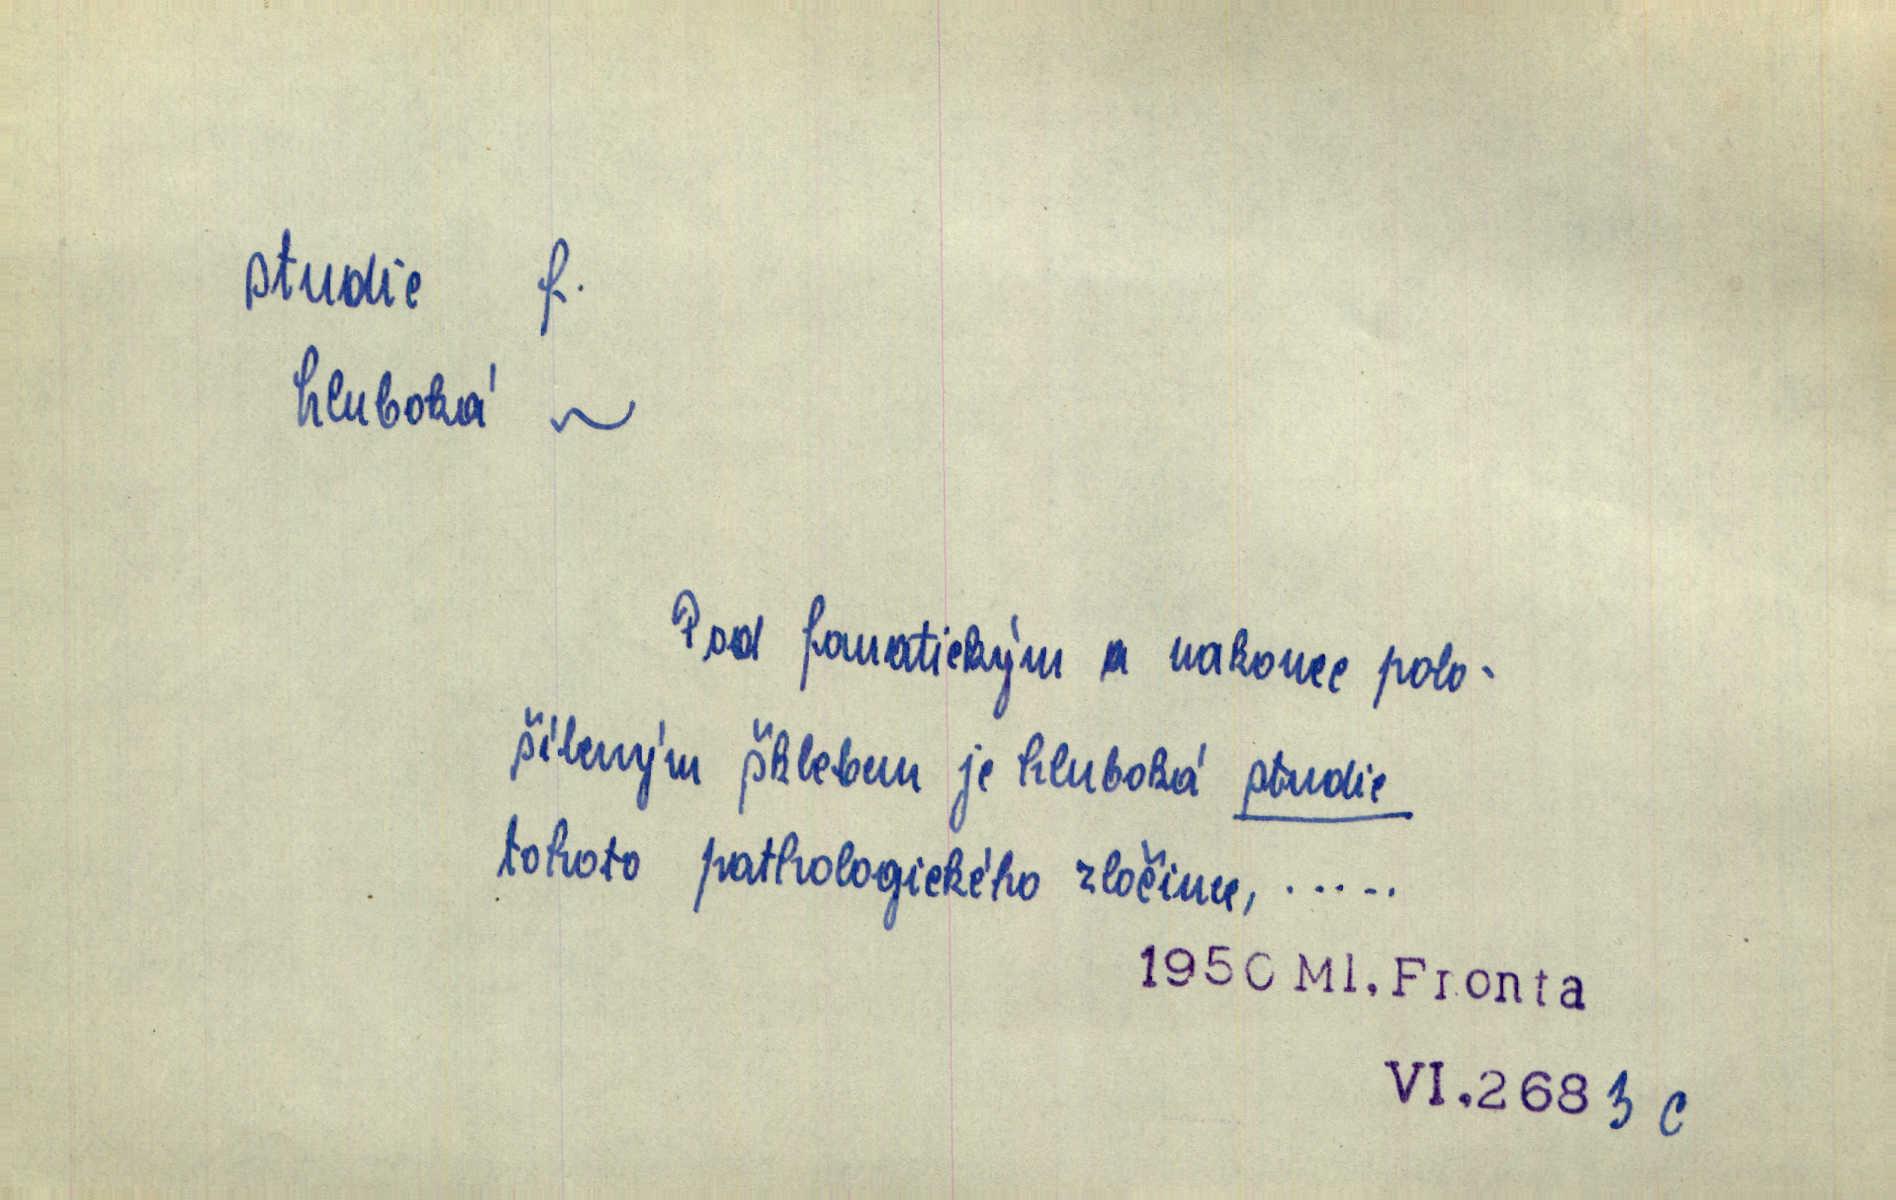 studie f.
hluboká ~
Pod fanatickým a nakonec polo-
šíleným šklebem je hluboká studie
tohoto pathologického zločince, .....
1950 Ml. Fronta
VI.268 3 c